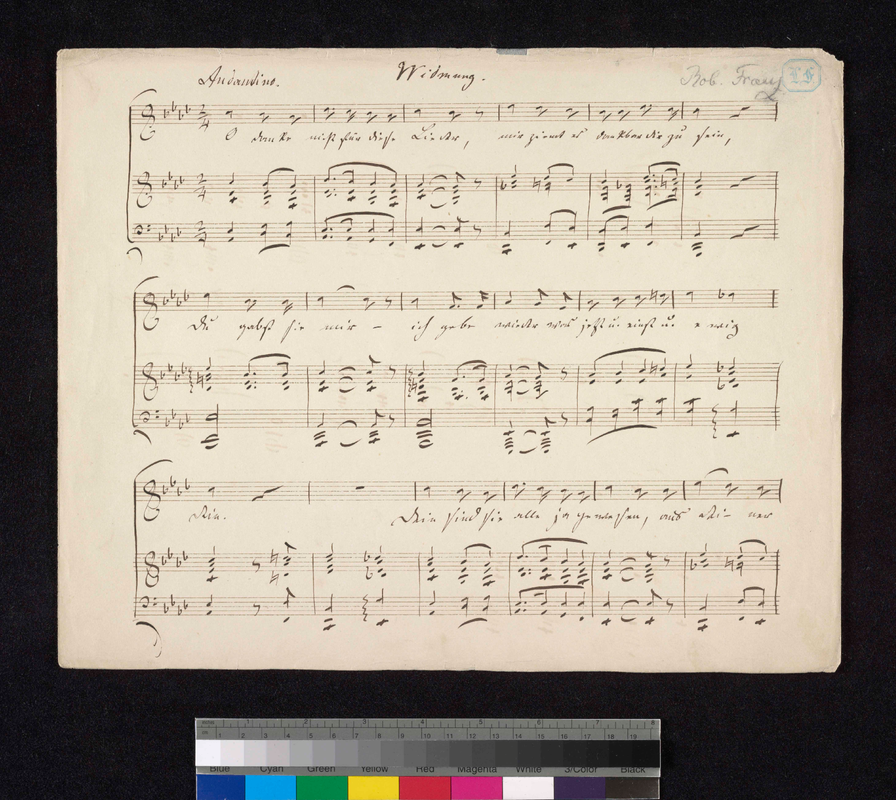 Andantino.
Widmung.
Rob. Franz
O danke nicht für diese Lieder, mir ziemt es dankbar dir zu sein,
Du gabst sie mir – ich gebe wieder was jetzt u. einst u. ewig
dein.
Dein sind sie alle ja gewesen, aus dei- ner
1 2 3 4 5 6 7 8
1 2 3 4 5 6 7 8 9 10 11 12 13 14 15 16 17 18 19
Blue Cyan Green Yellow Red Magenta White 3/Color Black